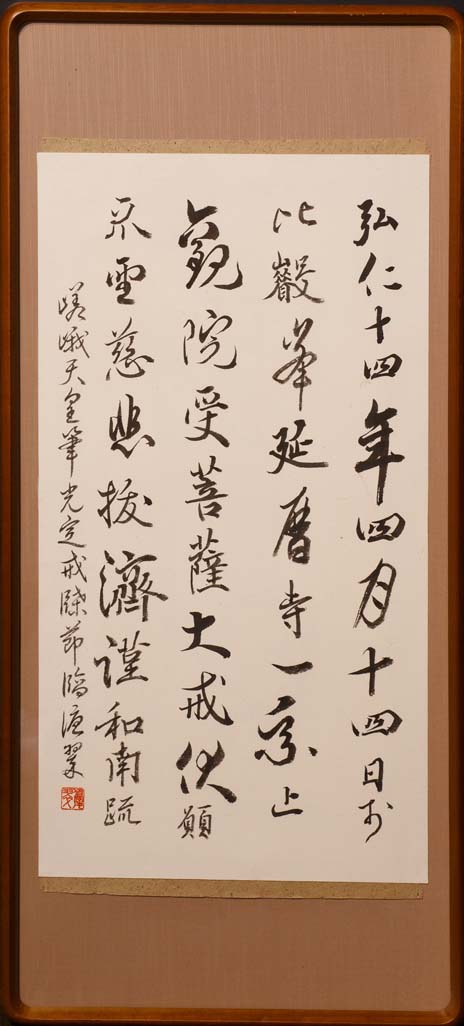 弘仁十四年四月十四日於
比叡峯延暦寺一乗止
觀院受菩薩大戒伏願
衆聖慈悲拔濟謹和南疏
嵯峨天皇筆光定戒牒節臨翠